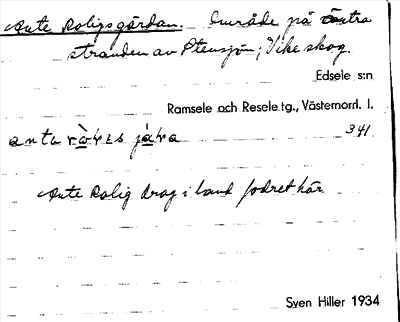 Ante Roligsgärdan. Område på östra
stranden av Stensjön; Vike skog.
Edsele s:n
Ramsele och Resele tg., Västernorrl. l.
341
Ante Rolig drog i land fodret här
Sven Hiller 1934